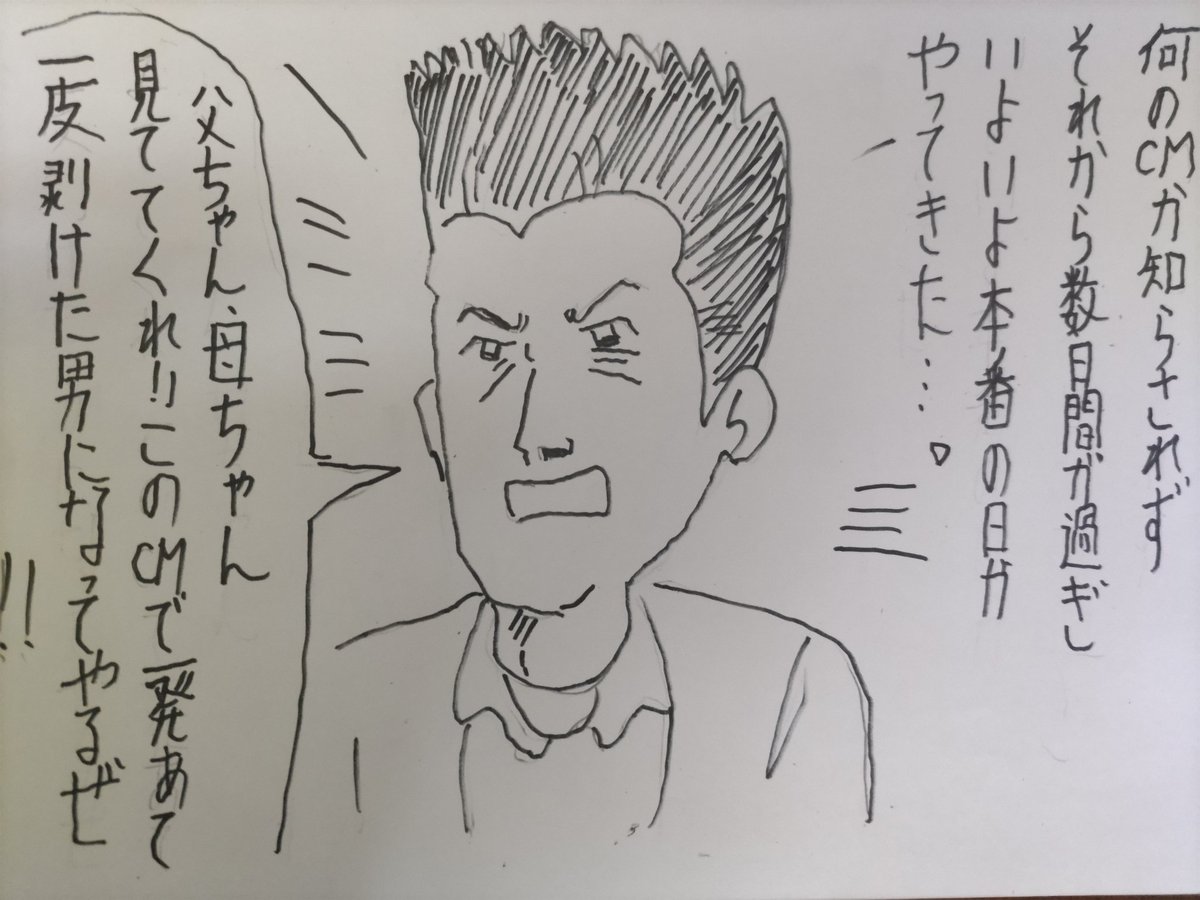 何のCMか知らされず
それから数日間が過ぎし
いよいよ本番の日が
やってきた…。
父ちゃん、母ちゃん
見ててくれ!!このCMで一発あて
一皮剥けた男になってやるぜ
!!